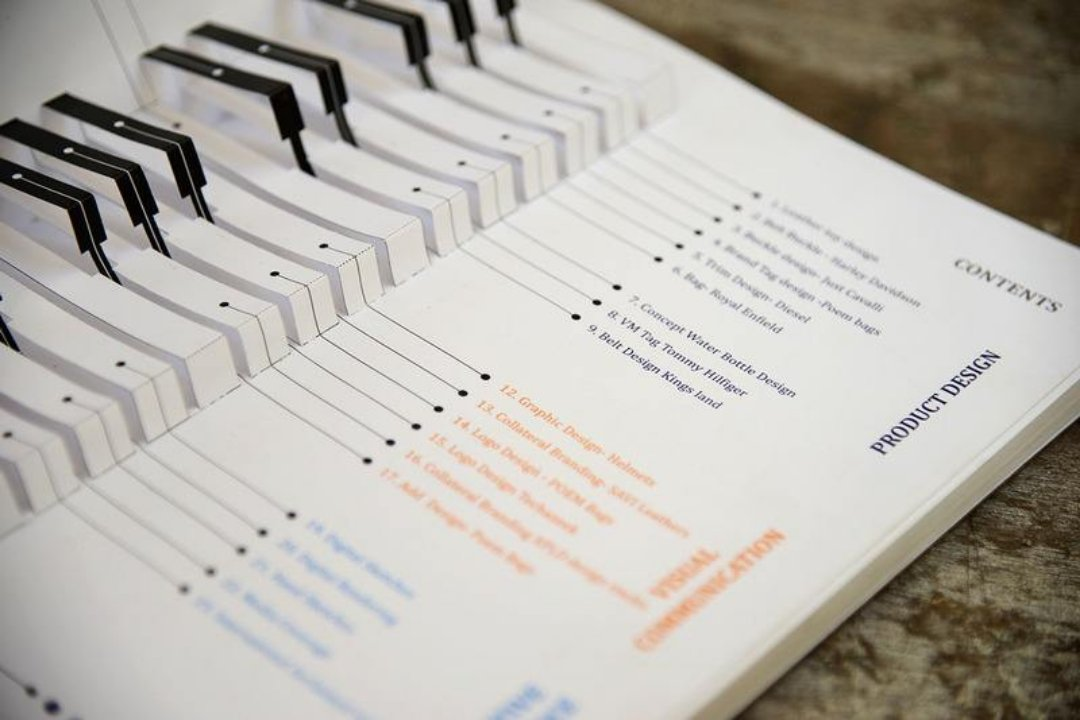 CONTENTS
PRODUCT DESIGN
1. Leather toy design
2. Belt Buckle - Harley Davidson
3. Buckle design- Just Cavalli
4. Brand Tag design -Poem bags
5. Trim Design- Diesel
6. Bag- Royal Enfield
7. Concept Water Bottle Design
8. VM Tag Tommy Hilfiger
9. Belt Design Kings land
VISUAL
COMMUNICATION
12. Graphic Design- Helmets
13. Collateral Branding- SAVI Leathers
14. Logo Design - POEM Bags
15. Logo Design Techanek
16. Collateral Branding
17. Add Design- Poem Bags
19. Digital Sketches
20. Digital Rendering